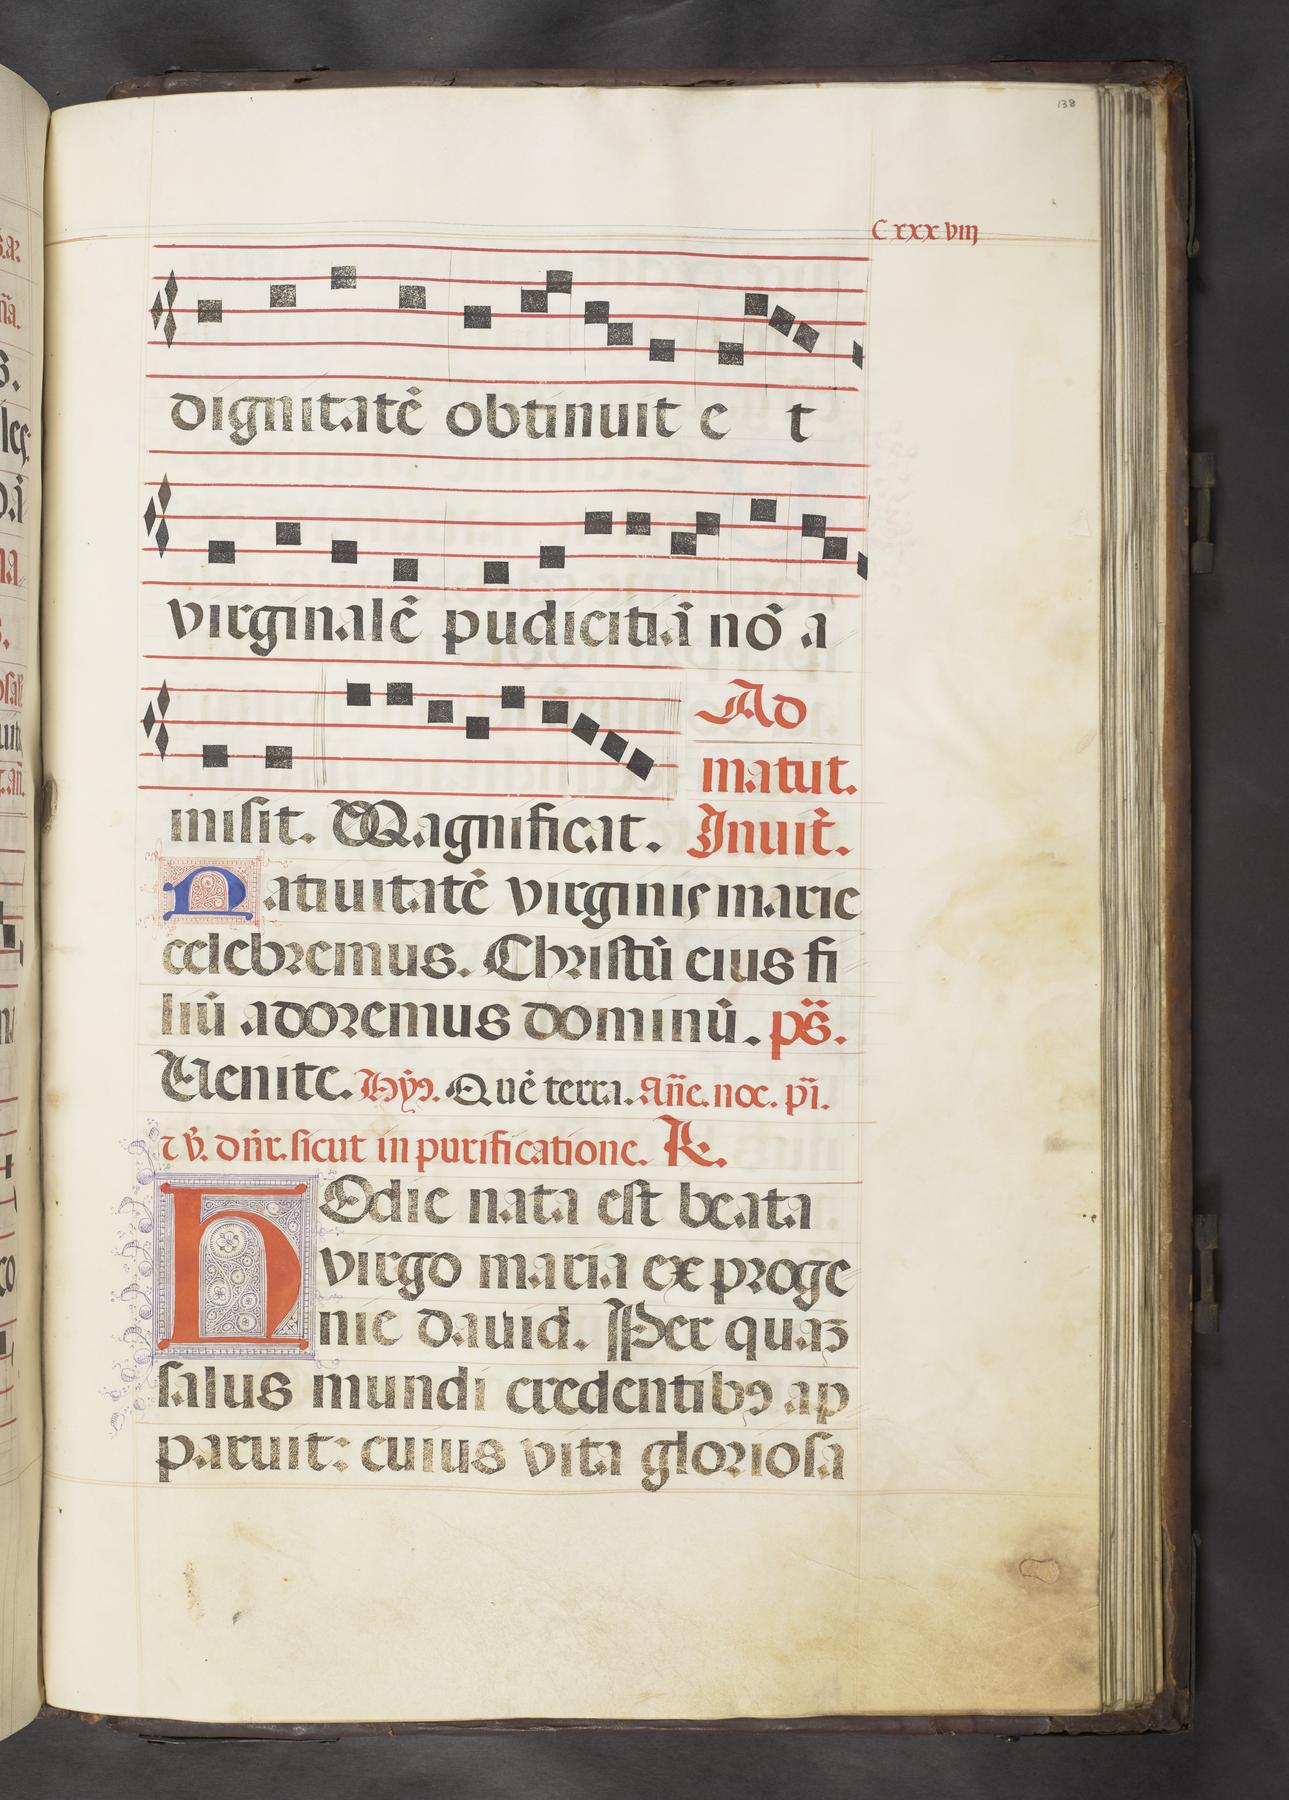 138
Cxxxviij
dignitatē obtinuit e t
virginalē pudicitiā nō a
Ad
matut.
misit. Magnificat. Inuit̄.
Natiuitatē virginis marie
celebremus. Christū eius fi
liū adoremus dominū. ps̄.
Uenite. Hyꝰ. Quē terra. Añe. noc. pi̅.
⁊ v̄. dn̄r. sicut in purificatione. R.
hOdie nata est beata
virgo maria ex proge
nie dauid. Per quaꝫ
salus mundi credentibꝯ ap
paruit: cuius vita gloriosa